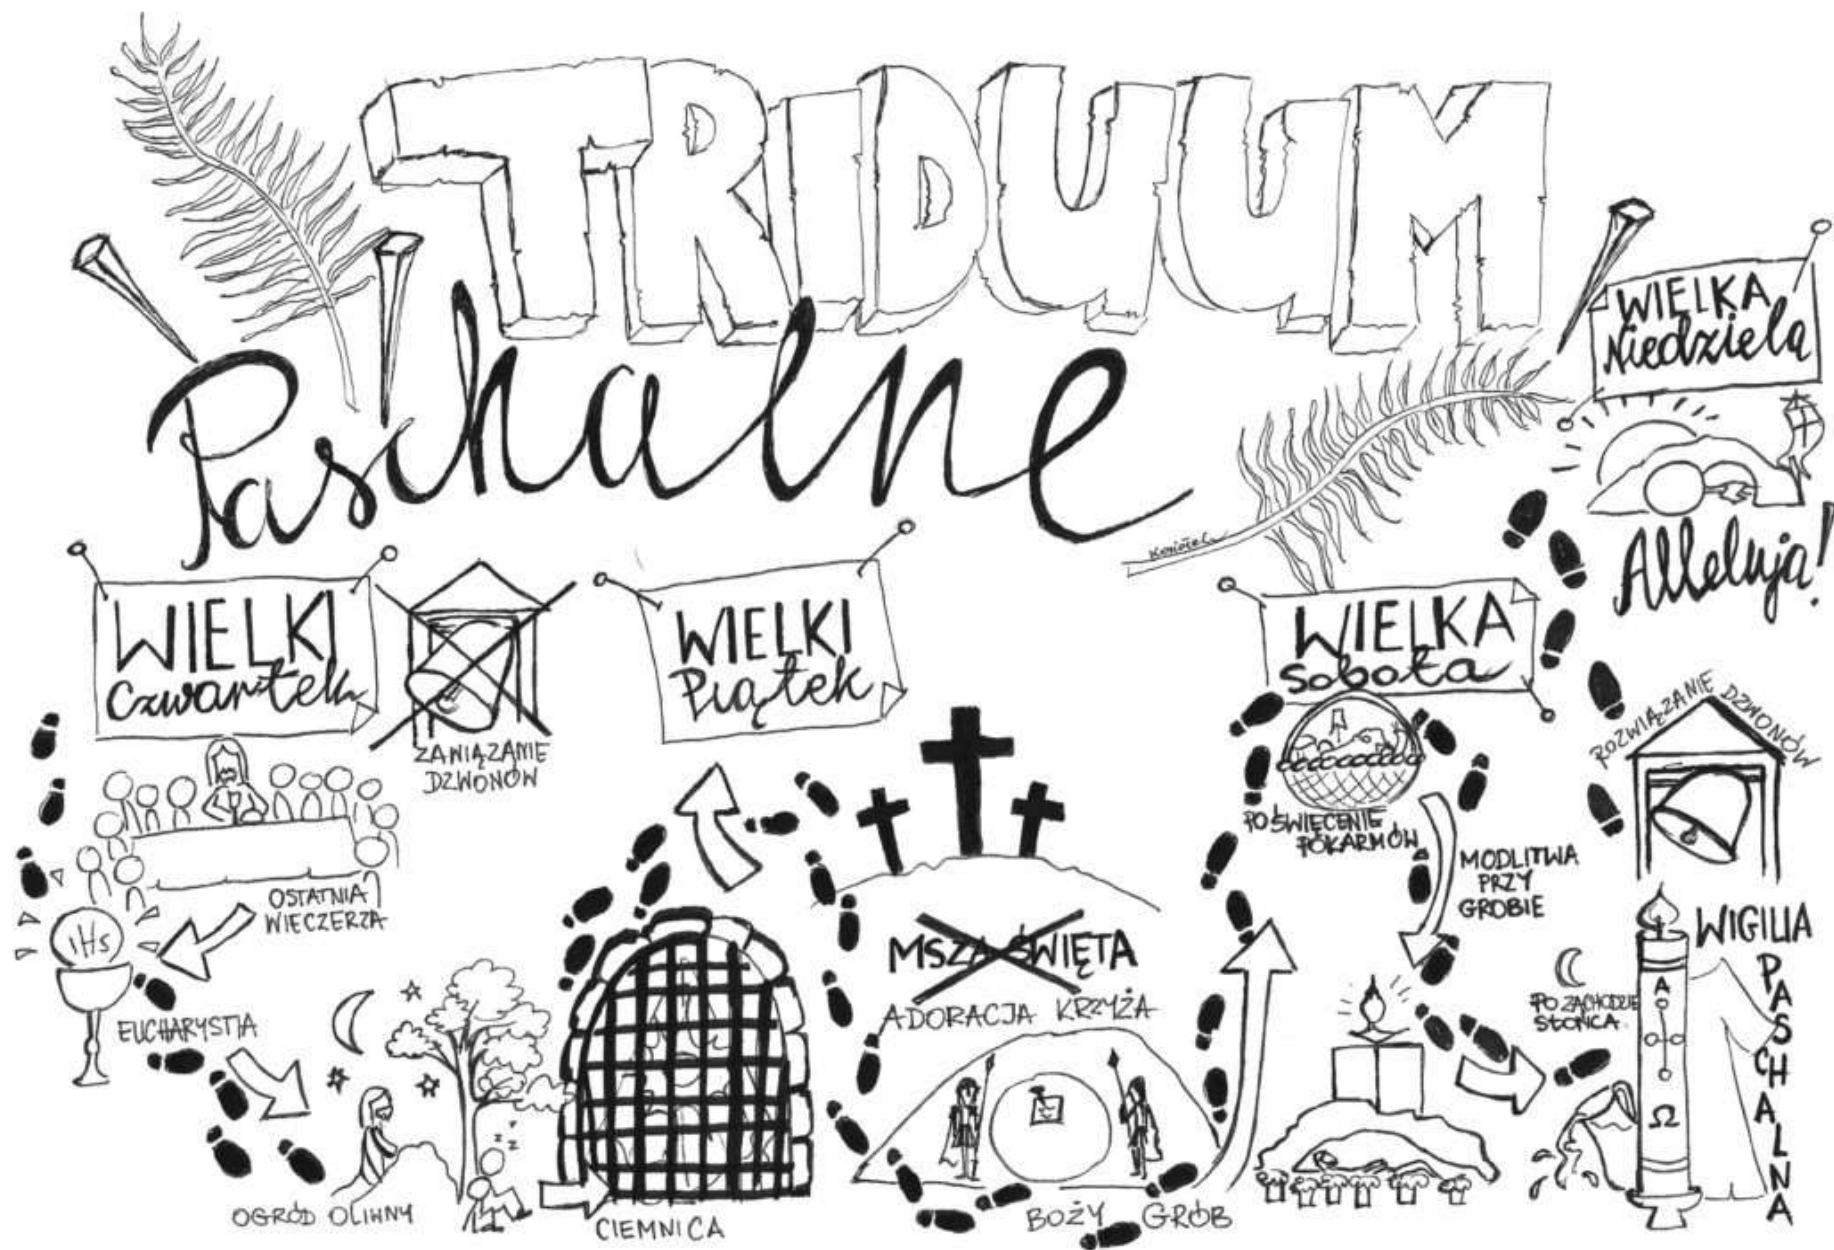 TRIDUUM
Paschalne
WIELKI
Czwartek
ZAWIĄZANIE
DZWONÓW
OSTATNIA
WIECZERZA
IHS
EUCHARYSTIA
OGRÓD OLIWNY
z z z
CIEMNICA
WIELKI
Piątek
MSZA ŚWIĘTA
ADORACJA KRZYŻA
BOŻY GRÓB
WIELKA
Sobota
POŚWIĘCENIE
POKARMÓW
MODLITWA
PRZY
GROBIE
PO ZACHODZIE
SŁOŃCA
A
Ω
WIGILIA
PASCHALNA
ROZWIĄZANIE DZWONÓW
WIELKA
Niedziela
Alleluja!